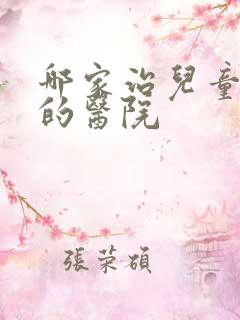 那家治兒童
的醫院
張荣碩